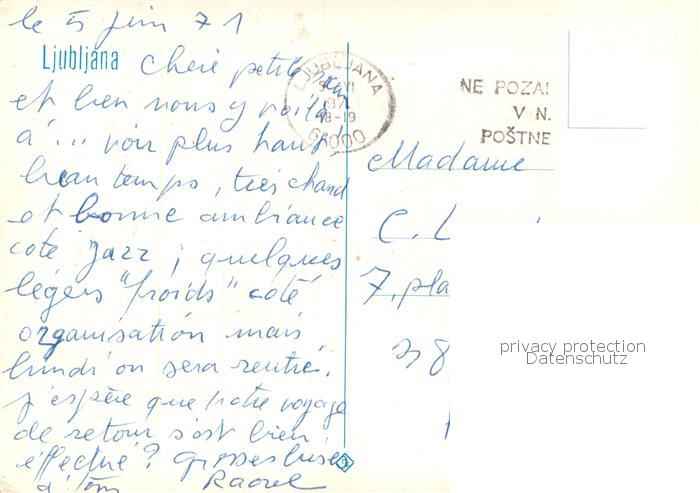 le 5 juin 71
Ljubljana
Chère petite
et bien nous y voilà
à ... voir plus haut!
beau temps, très chaud
et bonne ambiance
coté jazz; quelques
légers "froids" coté
organisation mais
lundi on sera rentré.
J'espère que votre voyage
de retour s'est bien
effectué? grosses bises
à tous
Raoul
LJUBLJANA
VI
197
18-19
61000
NE POZA
V N.
POŠTNE
Madame
C. L
7, pla
38
privacy protection
Datenschutz